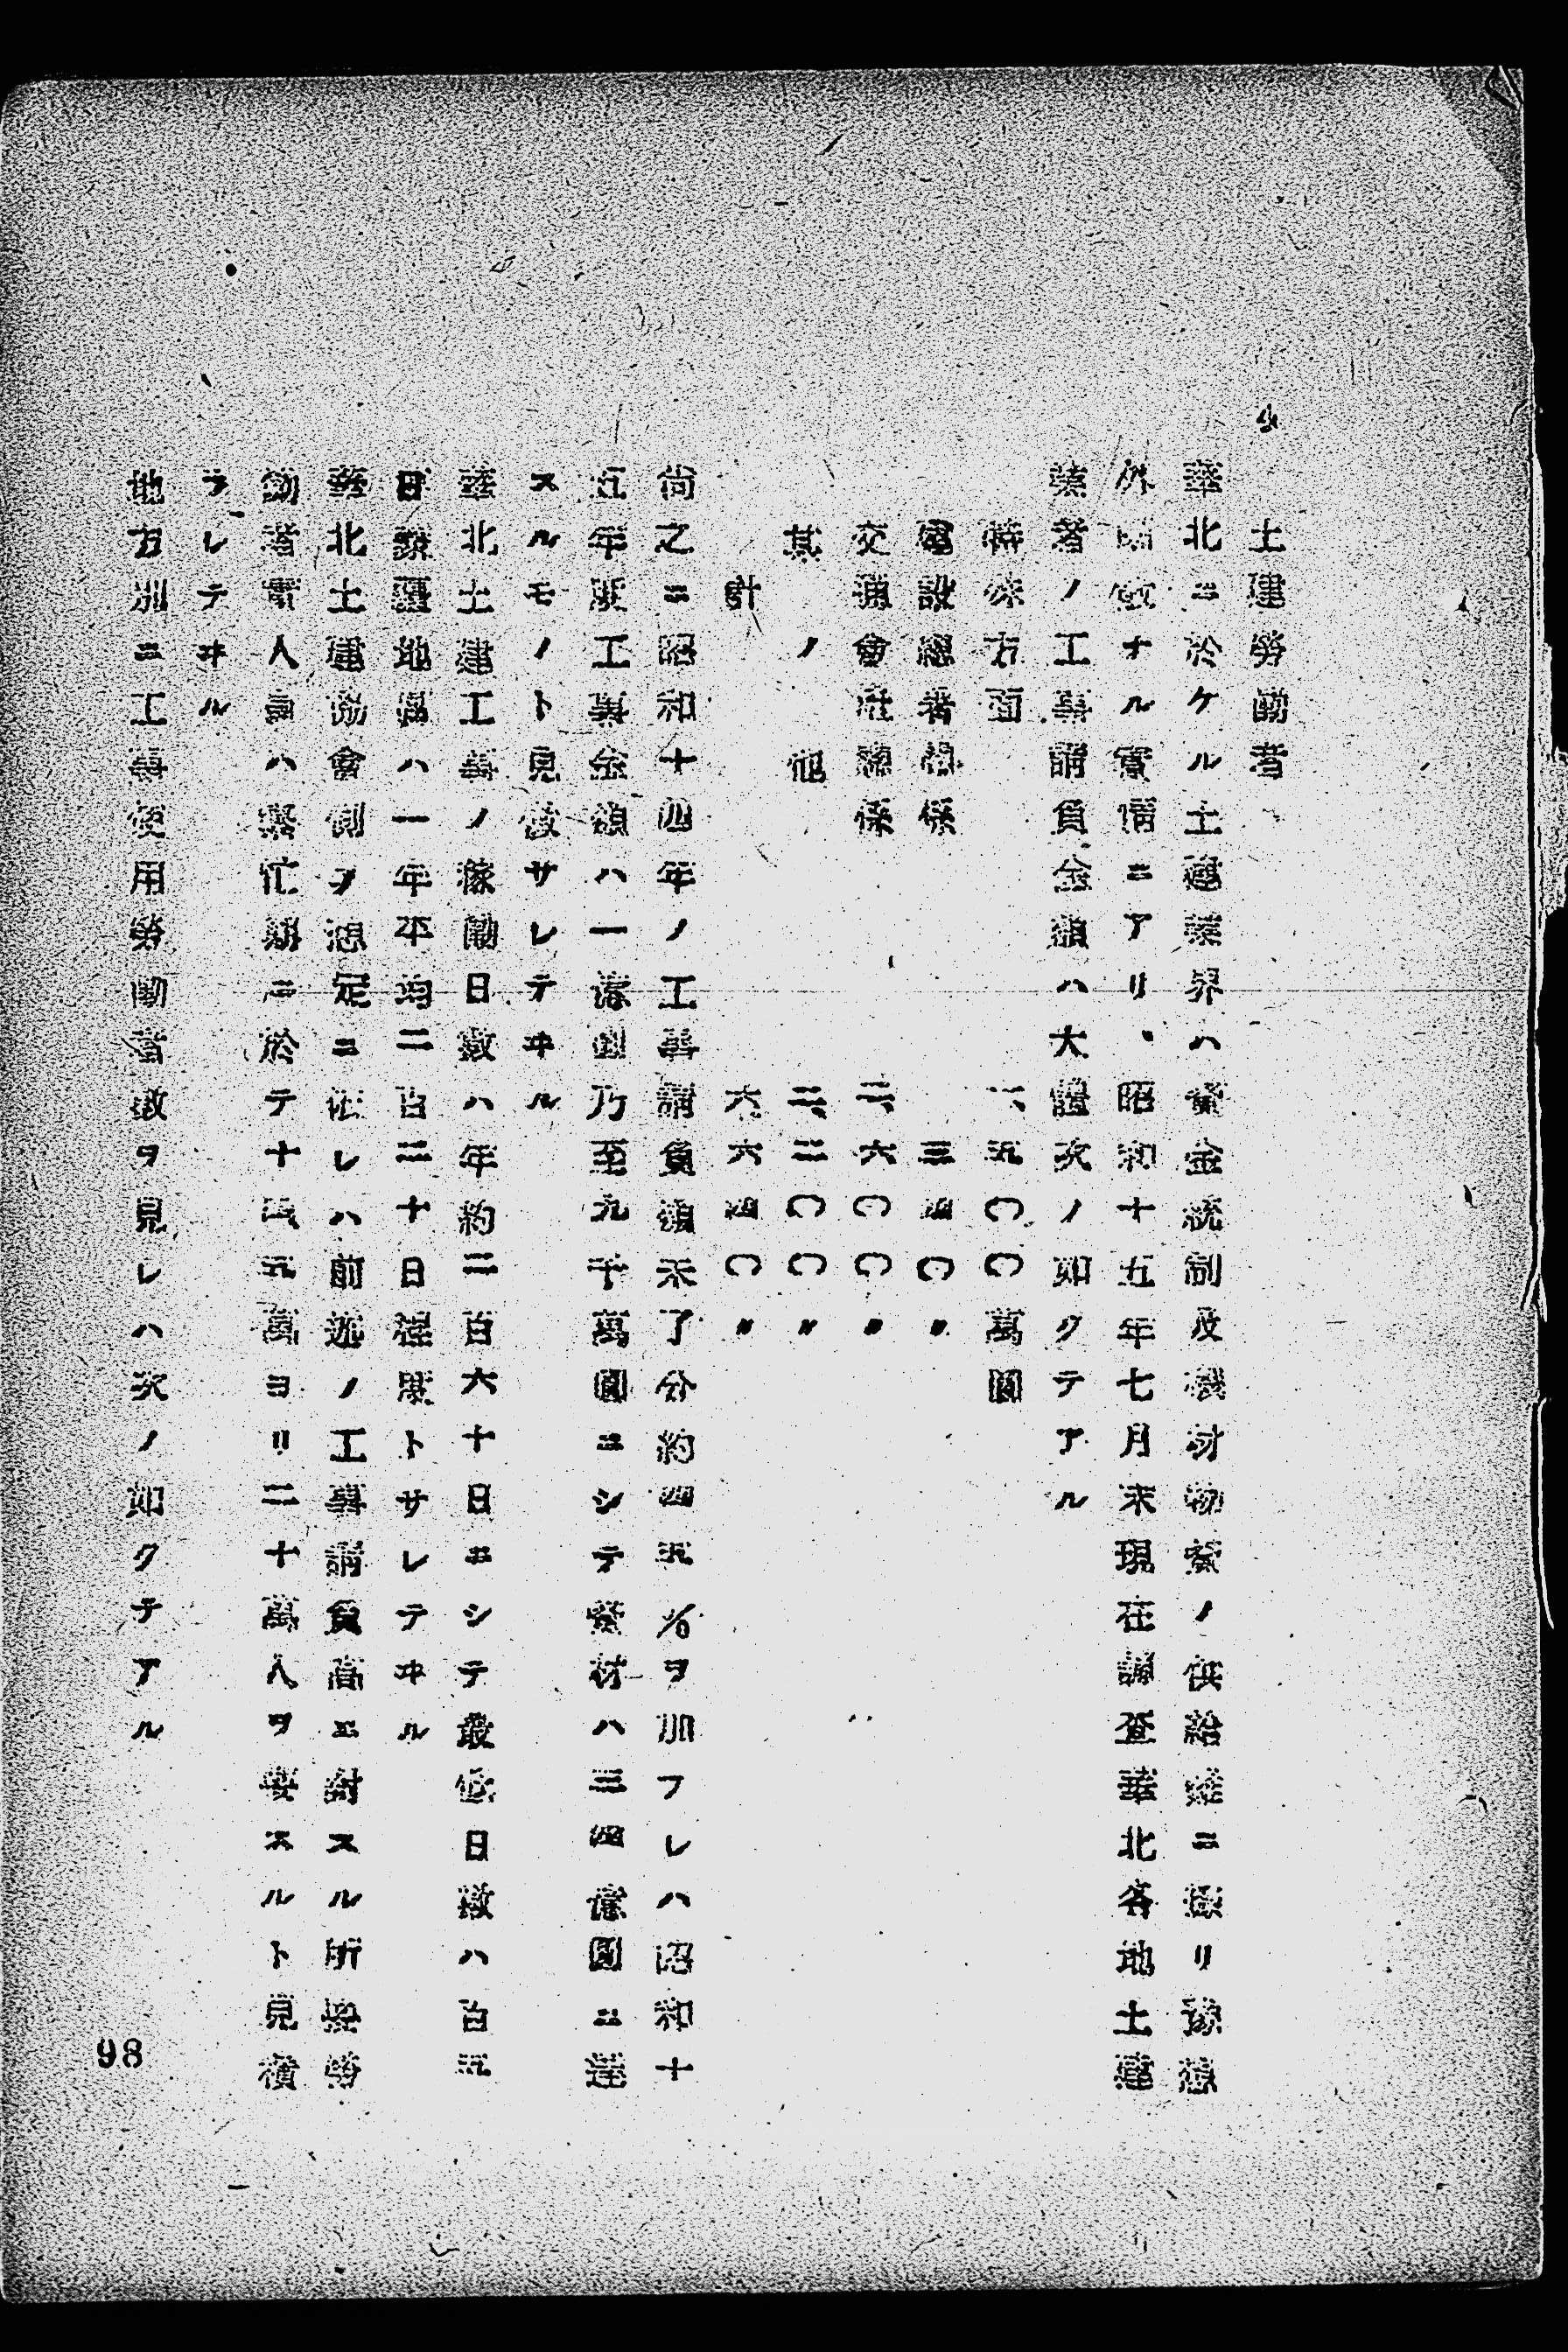 土建勞働者
華北ニ於ケル土建業界ハ資金統制及機材物資ノ供給難ニ依リ豫想
外閑散ナル實情ニアリ、昭和十五年七月末現在調査華北各地土建
業者ノ工事請負金額ハ大體次ノ如クテアル
特殊方面 一、五〇〇萬圓
電設總署關係 三四〇〃
交通會社關係 二、六〇〇〃
其ノ他 二、二〇〇〃
計 六、六四〇〃
尚之ニ昭和十四年ノ工事請負額未了分約四五%ヲ加フレハ昭和十
五年度工事金額ハ一億圓乃至九千萬圓ニシテ資材ハ三四億圓ニ達
スルモノト見做サレテヰル
華北土建工事ノ稼働日數ハ年約二百六十日ニシテ最低日數ハ百五
日蒙疆地區ハ一年平均二百二十日程度トサレテヰル
華北土建協會側ノ想定ニ依レハ前述ノ工事請負高ニ對スル所要勞
働者實人員ハ繁忙期ニ於テ十五萬ヨリ二十萬人ヲ要スルト見積
ラレテヰル
地方別ニ工事使用勞働者數ヲ見レハ次ノ如クテアル
98